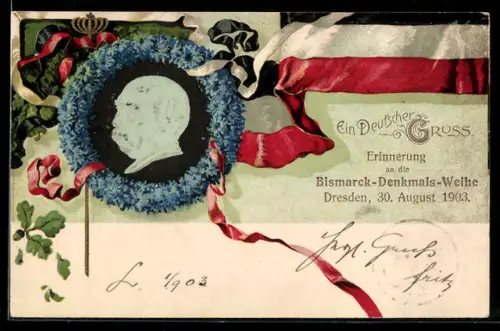 Ein Deutscher Gruss.
Erinnerung
an die
Bismarck-Denkmals-Weihe
Dresden, 30. August 1903.
Gruß
Fritz
L. 1/9 03